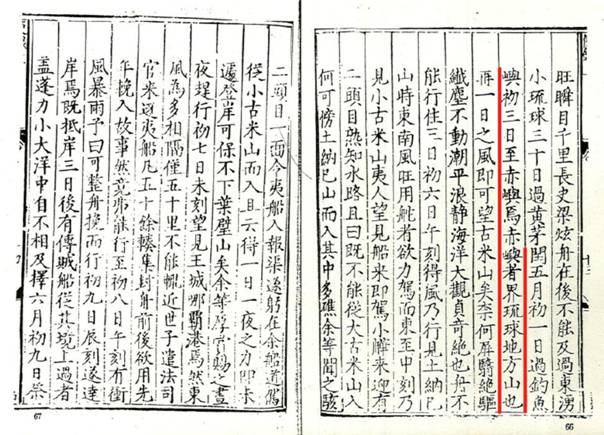 旺瞬目千里長史梁炫舟在後不能及過東湧
小琉球三十日過黃茅閏五月初一日過釣魚
嶼初三日至赤嶼焉赤嶼者界琉球地方山也
再一日之風即可望古米山矣奈何屏翳絕驅
纖塵不動潮平浪靜海洋大觀真奇絕也舟不
能行住三日初六日午刻得風乃行見土納已
山時東南風旺用舵者欲力駕而東至申刻乃
見小古米山夷人望見船來即駕小艀來迎有
二頭目熟知水路且曰既不能從大古米山入
何可傍土納已山而入其中多礁余等聞之駭
66
二頭目一面令夷船入報渠遂躬在余船道駕
從小古米山而入且云得一日一夜之力即未
遽登岸可保不下葉壁山矣余等厚賞賜之晝
夜趕行初七日未刻望見王城那霸港焉然東
風為多相隔僅五十里不能輒近世子遣法司
官來迓夷船凡五十餘轇集封舟前後欲用先
年挽入故事然竟弗能行至初八日午刻有衝
風暴雨予曰可整舟挽而行初九日辰刻遂達
岸焉既抵岸三日後有傳賊船從其境上過者
蓋蓬力小大洋中自不相及擇六月初九日祭
67